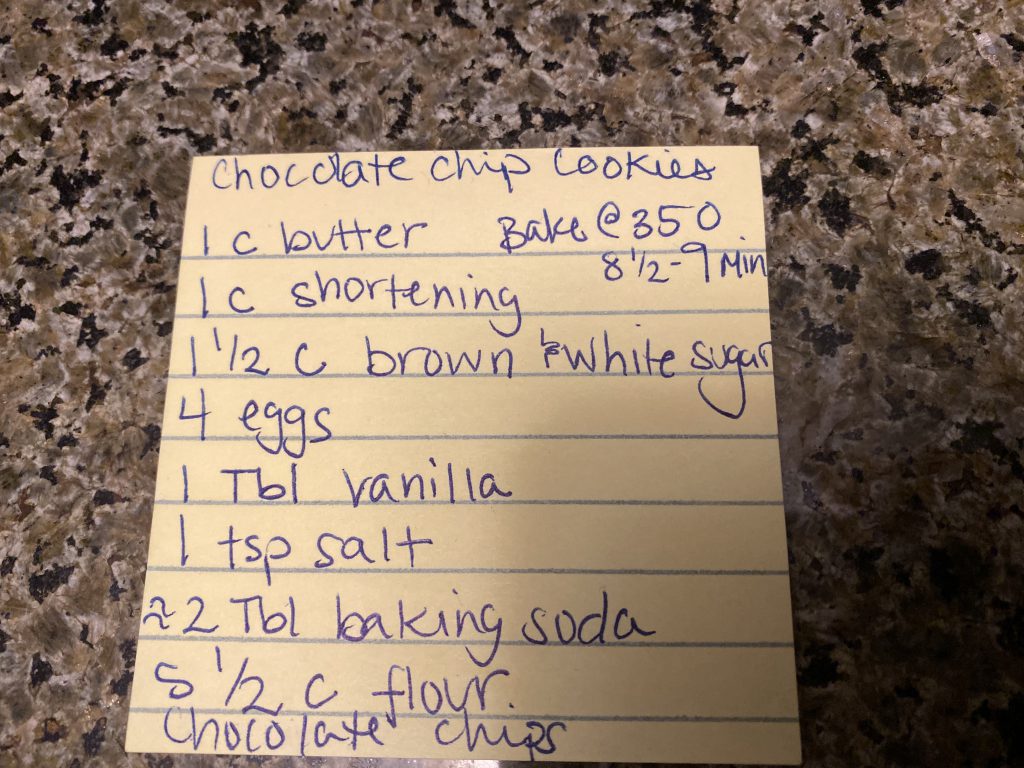 Chocolate Chip Cookies
1 c butter
Bake @ 350
8 1/2 - 9 Min.
1 c shortening
1 1/2 c brown & white sugar
4 eggs
1 Tbl vanilla
1 tsp salt
≈2 Tbl baking soda
5 1/2 c flour.
Chocolate chips